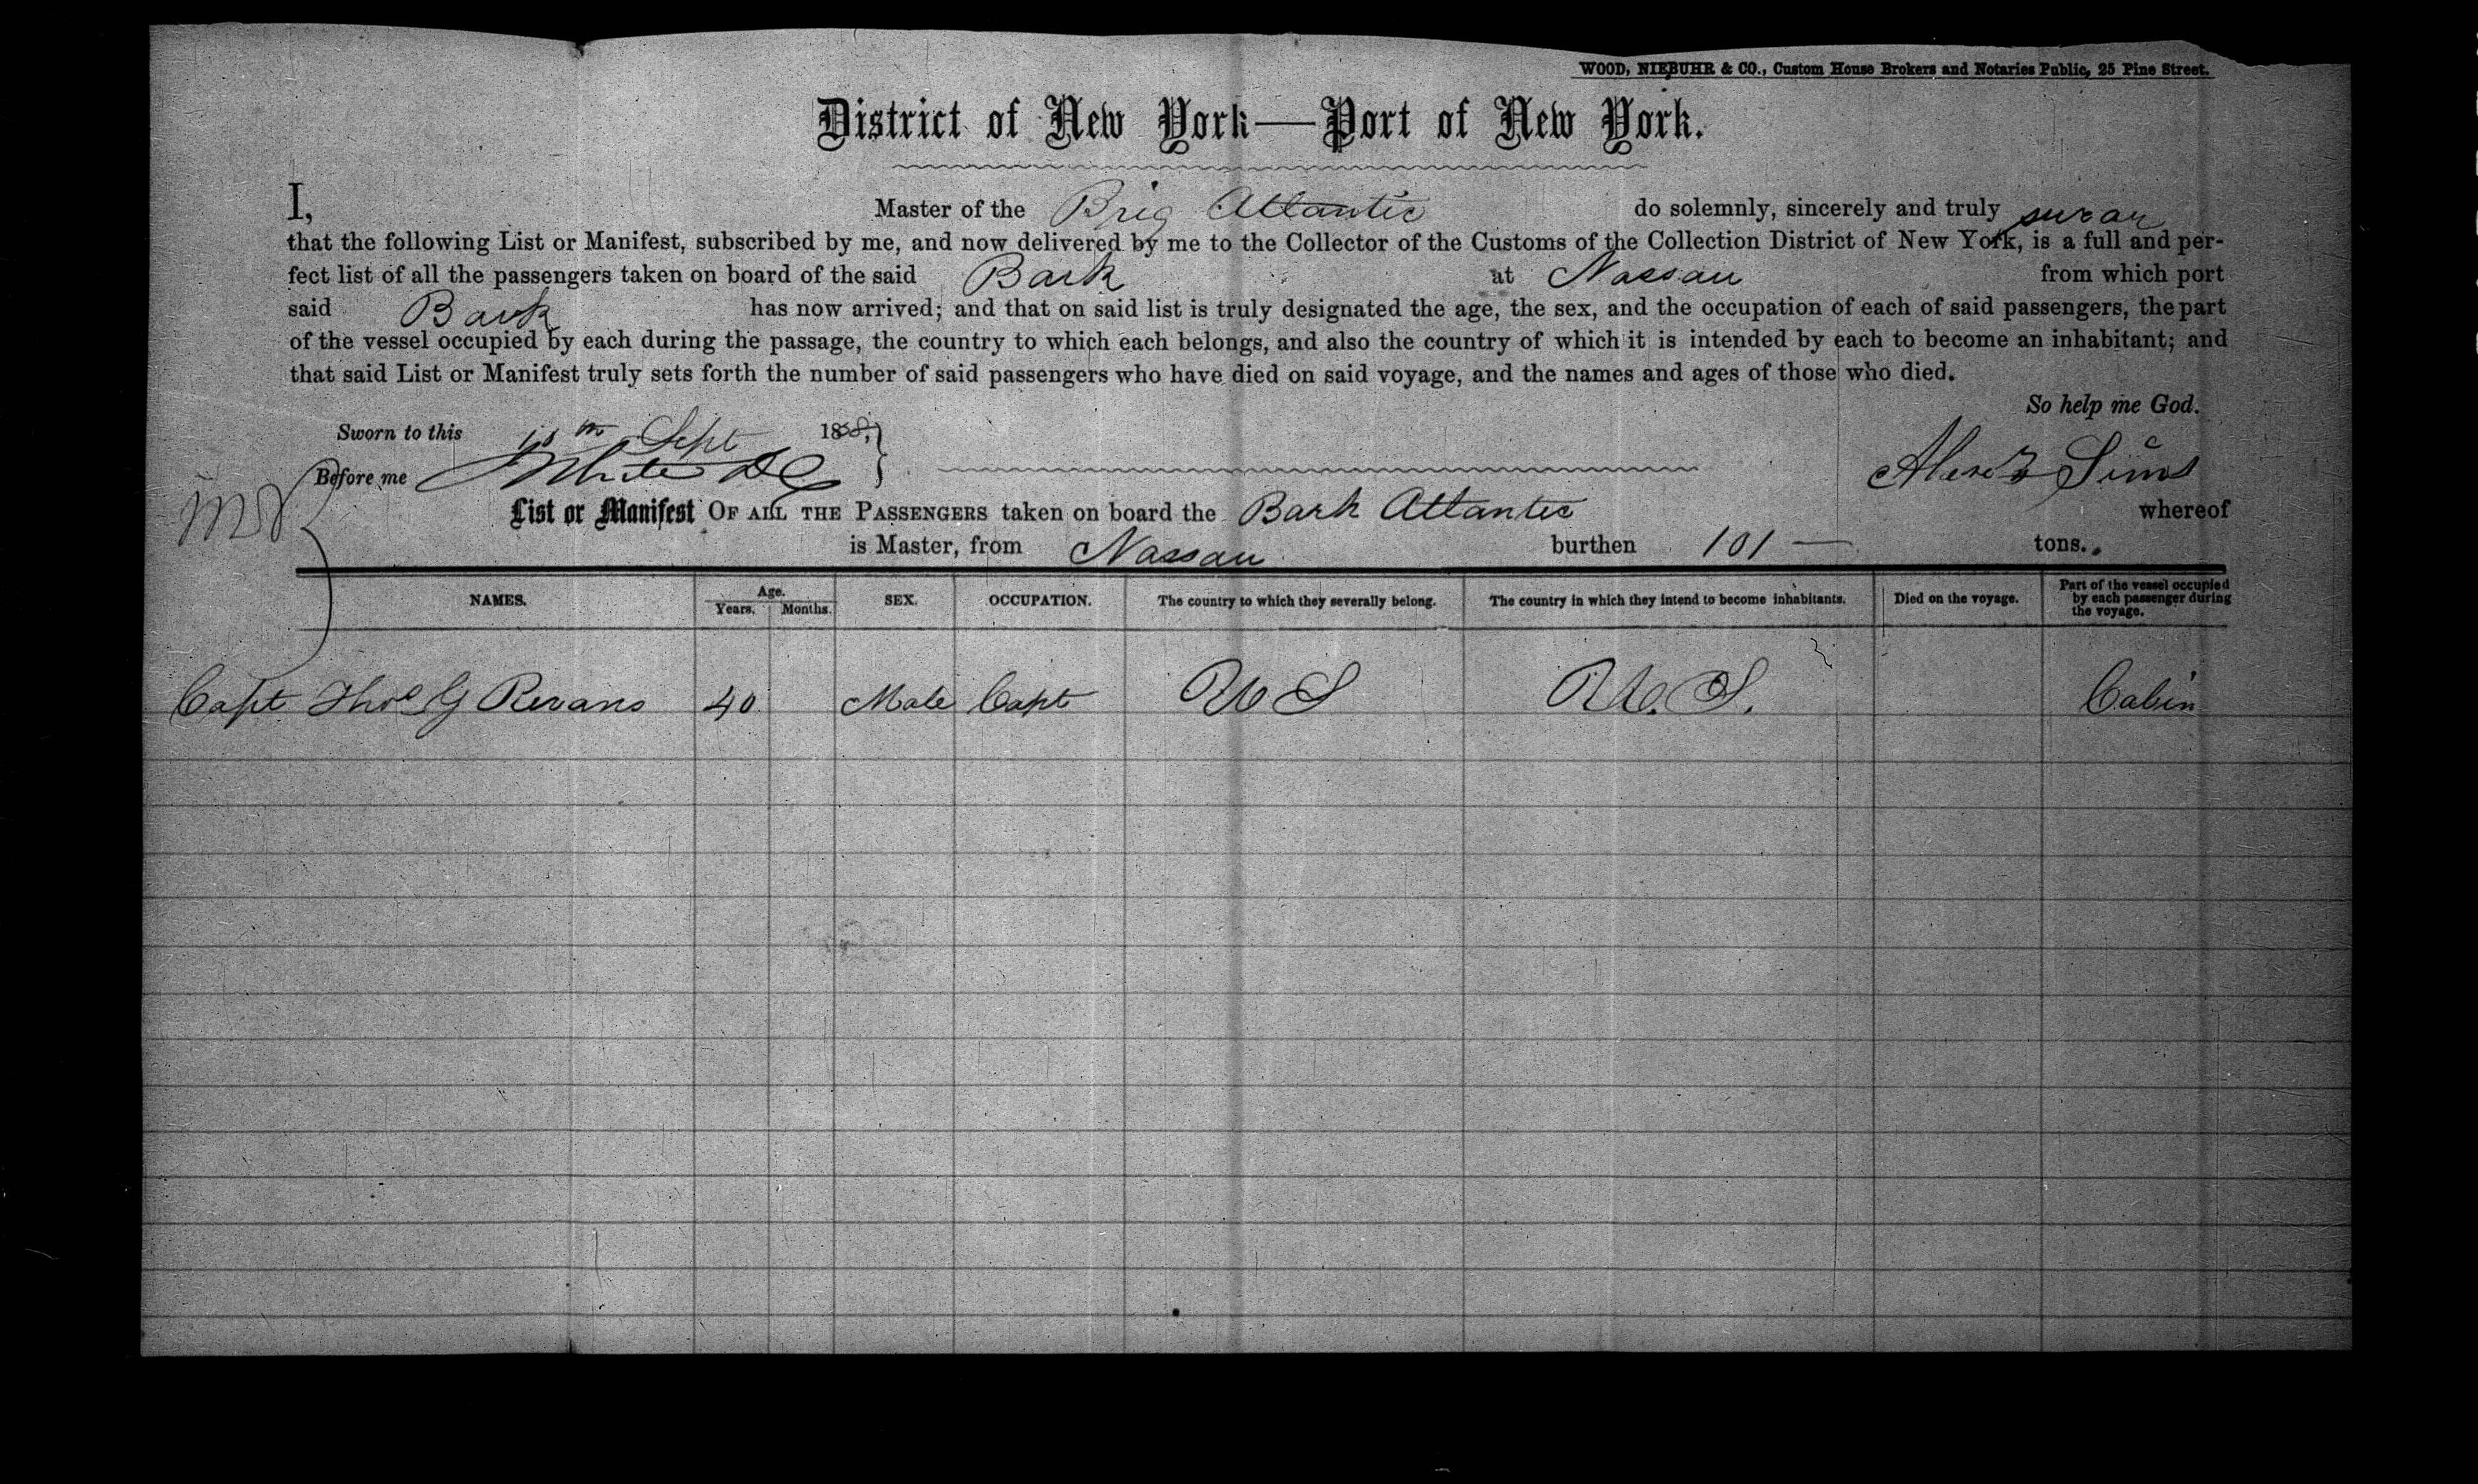 WOOD, NIEBUHR & CO., Custom House Brokers and Notaries Public, 25 Pine Street.
District of New York—Port of New York.
I, Master of the Brig Atlantic do solemnly, sincerely and truly swear
that the following List or Manifest, subscribed by me, and now delivered by me to the Collector of the Customs of the Collection District of New York, is a full and per-
fect list of all the passengers taken on board of the said Bark at Nassau from which port
said Bark has now arrived; and that on said list is truly designated the age, the sex, and the occupation of each of said passengers, the part
of the vessel occupied by each during the passage, the country to which each belongs, and also the country of which it is intended by each to become an inhabitant; and
that said List or Manifest truly sets forth the number of said passengers who have died on said voyage, and the names and ages of those who died.
So help me God.
Sworn to this Sept 188
Before me White DC
Sims
List or Manifest OF ALL THE PASSENGERS taken on board the Bark Atlantic whereof
is Master, from Nassau burthen 101 — tons.
NAMES. Age. Years. Months. SEX. OCCUPATION. The country to which they severally belong. The country in which they intend to become inhabitants. Died on the voyage. Part of the vessel occupied by each passenger during the voyage.
Capt Thos G Revans 40 Male Capt U S U.S. Cabin